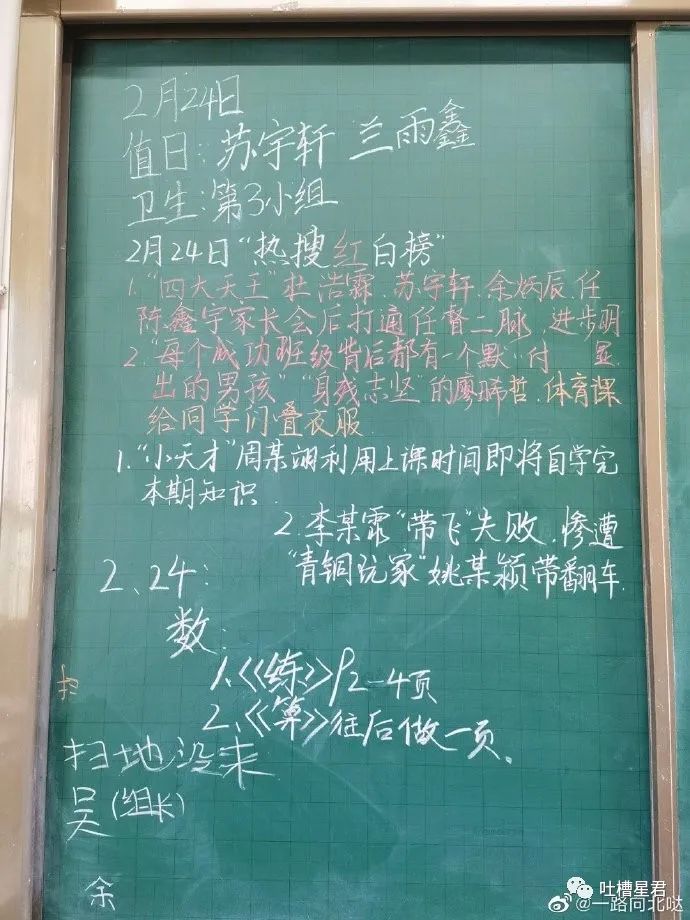 2月24日
值日:苏宇轩 兰雨鑫
卫生:第3小组
2月24日"热搜红白榜"
1."四大天王"杜浩霖.苏宇轩.余炳辰.任
陈鑫宇家长会后打通任督二脉.进步明
2."每个成功班级背后都有一个默 付 显
出的男孩" "身残志坚"的廖晞哲.体育课
给同学们叠衣服.
1."小天才"周某翊利用上课时间即将自学完
本期知识.
2.李某霏"带飞"失败.惨遭
"青铜玩家"姚某颖带翻车.
2、24:
数:
1.《练》P2-4页
2、《算》往后做一页、
扫
扫地没来
吴(组长)
余
吐槽星君
@一路向北哒